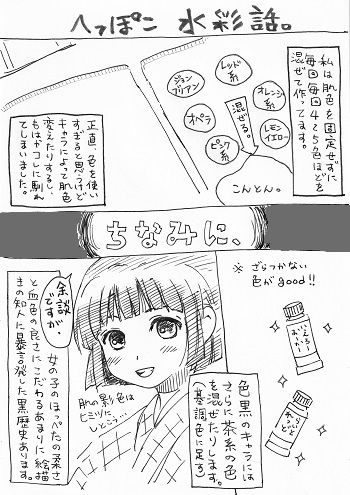 へっぽこ 水彩話。
私は肌色を固定せずに
毎回毎回4〜5色ほどを
混ぜて作ってます。
レッド
系
ジョン
ブリアン
オレンジ
系
オペラ
混ぜる。
レモン
イエロー
ピンク
系
こんとん。
正直、色を使い
すぎると思うけど
キャラによって肌色
変えたりするし、
もはやコレに馴れ
てしまいました。
ちなみに、
※ ざらつかない
色がgood!!
いえろー
おーかー
れっど
色黒のキャラには
さらに茶系の色
を混ぜたりします。
(基調色に足る)
肌の彩色は
しっとり…
余談
ですが、
女の子のほっぺたの柔さ
と血色の良さにこだわるあまりに絵描
きの知人に暴言発した黒歴史あります。